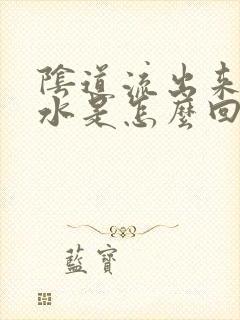 陰道流出来
水是怎麼回
藍寶